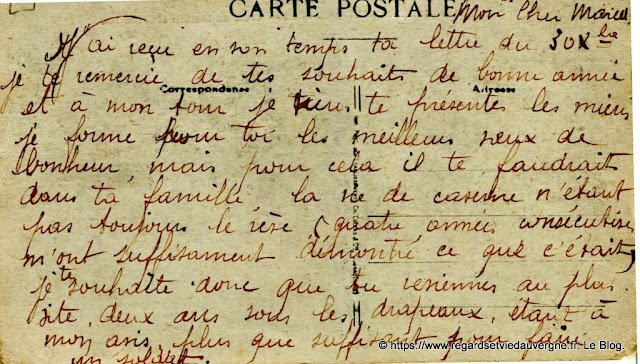 CARTE POSTALE
Mon Cher Marcel
J'ai reçu en son temps ta lettre du 30 Xbre
je te remercie de tes souhaits de bonne année
Correspondance
Adresse
et à mon tour je viens te présenter les miens
je forme pour toi les meilleurs vœux de
bonheur, mais pour cela il te faudrait
dans ta famille, la vie de caserne n'étant
pas toujours le rêve (quatre années consécutives
m'ont suffisament démontré ce que c'était)
je te souhaite donc que tu reviennes au plus
vite, deux ans sous les drapeaux, étant à
mon avis, plus que suffisant pour faire
un soldat
© https://www.regardsetviedauvergne.fr. Le Blog.